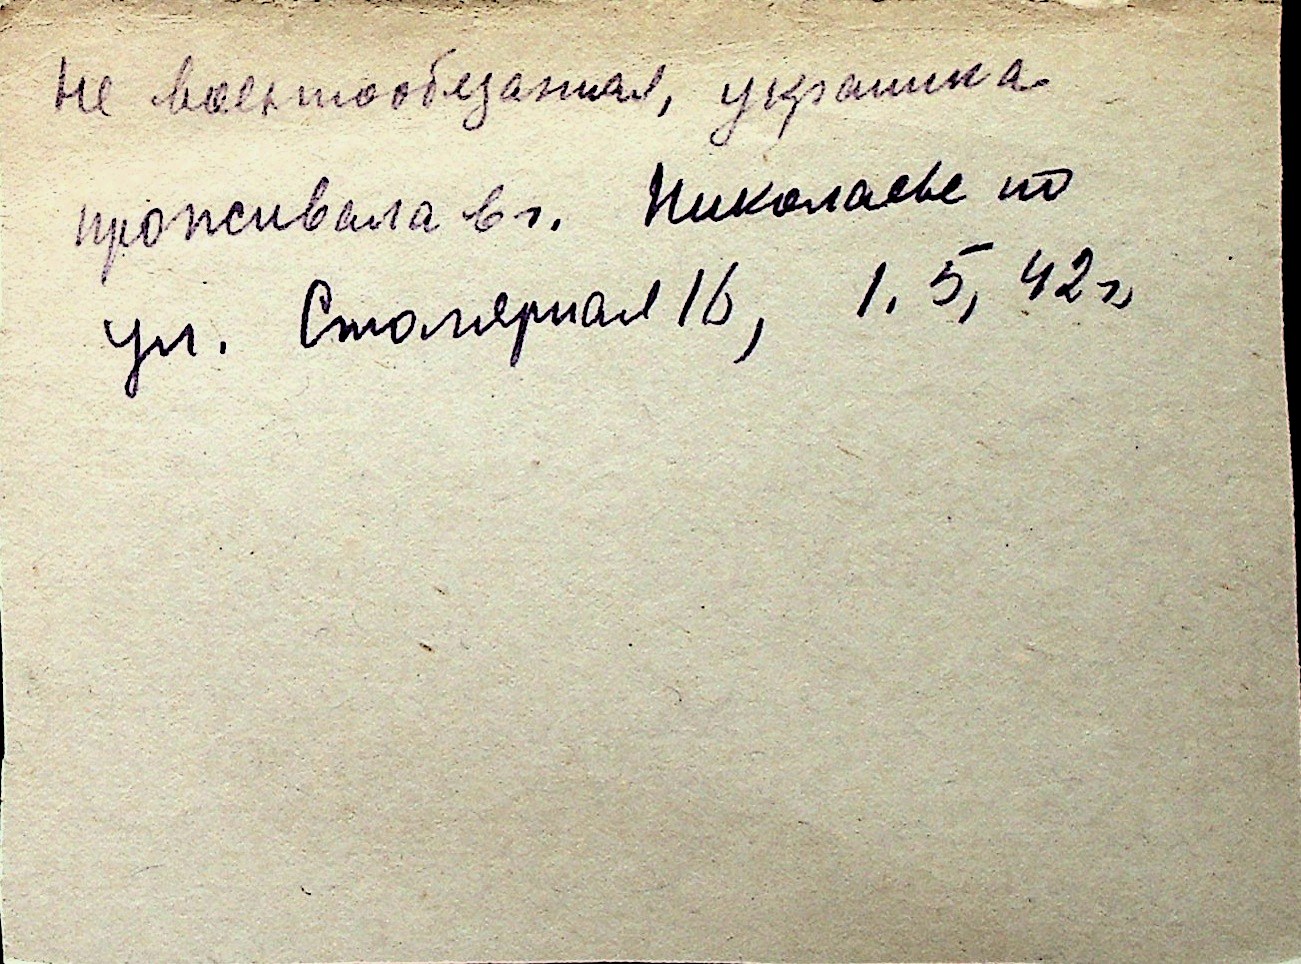 Не военнообязанная, украинка
проживала в г. Николаеве по
ул. Столярная 16, 1. 5, 42 г,